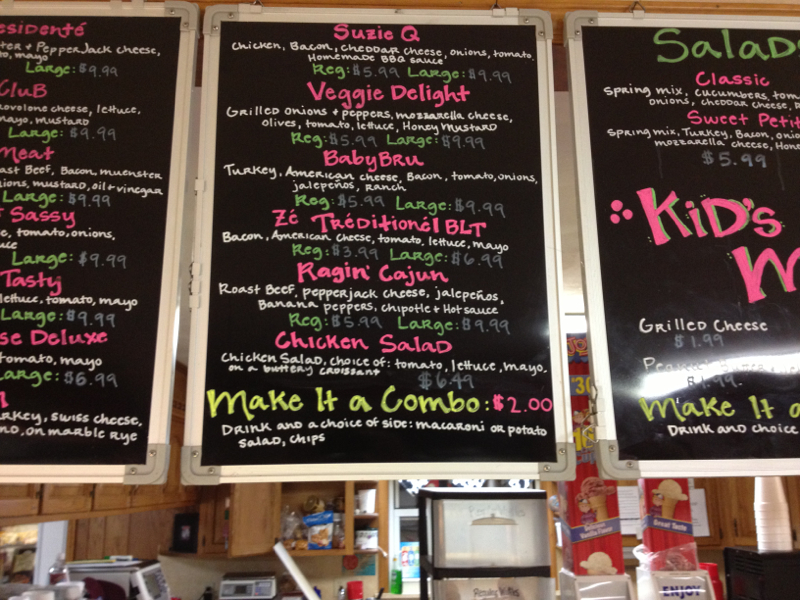 esidenté
ter + PepperJack cheese,
to, mayo
Large: $9.99
Club
rovolone cheese, lettuce,
mayo, mustard
Large: $9.99
Meat
ast Beef, Bacon, muenster
nions, mustard, oil + vinegar
Large: $9.99
Sassy
e, tomato, onions,
uce
Large: $9.99
Tasty
lettuce, tomato, mayo
Large: $9.99
se Deluxe
tomato, mayo
Large: $6.99
urkey, swiss cheese,
nd, on marble rye
Suzie Q
Chicken, Bacon, cheddar cheese, onions, tomato.
Homemade BBQ sauce
Reg: $5.99 Large: $9.99
Veggie Delight
Grilled onions + peppers, mozzarella cheese,
olives, tomato, lettuce, Honey Mustard
Reg: $5.99 Large: $9.99
BabyBru
Turkey, American cheese, Bacon, tomato, onions,
jalepeños, ranch
Reg: $5.99 Large: $9.99
Zé Tréditionél BLT
Bacon, American cheese, tomato, lettuce, mayo
Reg: $3.99 Large: $6.99
Ragin' Cajun
Roast Beef, pepperjack cheese, jalepeños,
Banana peppers, chipotle + Hot sauce
Reg: $5.99 Large: $9.99
Chicken Salad
Chicken Salad, choice of: tomato, lettuce, mayo.
on a buttery croissant
$6.49
Make It a Combo: $2.00
Drink and a choice of side: macaroni or potato
salad, chips
Salad
Classic
Spring mix, cucumbers, tom
onions, cheddar cheese,
Sweet Petit
Spring mix, Turkey, Bacon, onio
mozzarella cheese, Hone
$5.99
Kid's
M
Grilled Cheese
$1.99
$1.99
Make It a
Drink and choice
Great Taste
ENJOY